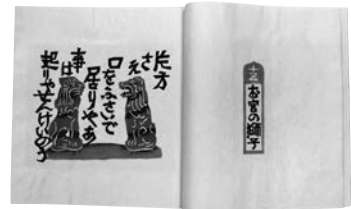 十二
お宮の獅子
片方
さえ
口をふさいで
居りやあ
事は
起りやせんけいのう